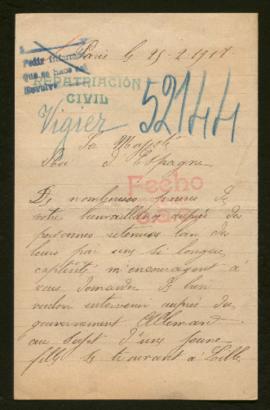 Paris le 25-2-1918
REPATRIACIÓN
CIVIL
Vigier
52144
Sa Majesté
Roi d'Espagne
Fecho
De nombreuses preuves de
votre bienveillance auprès des
personnes retenues loin de
leurs par une si longue
captivité m'encouragent à
vous demander de bien
vouloir intervenir auprès du
gouvernement Allemand
au sujet d'une jeune
fille se trouvant à Lille